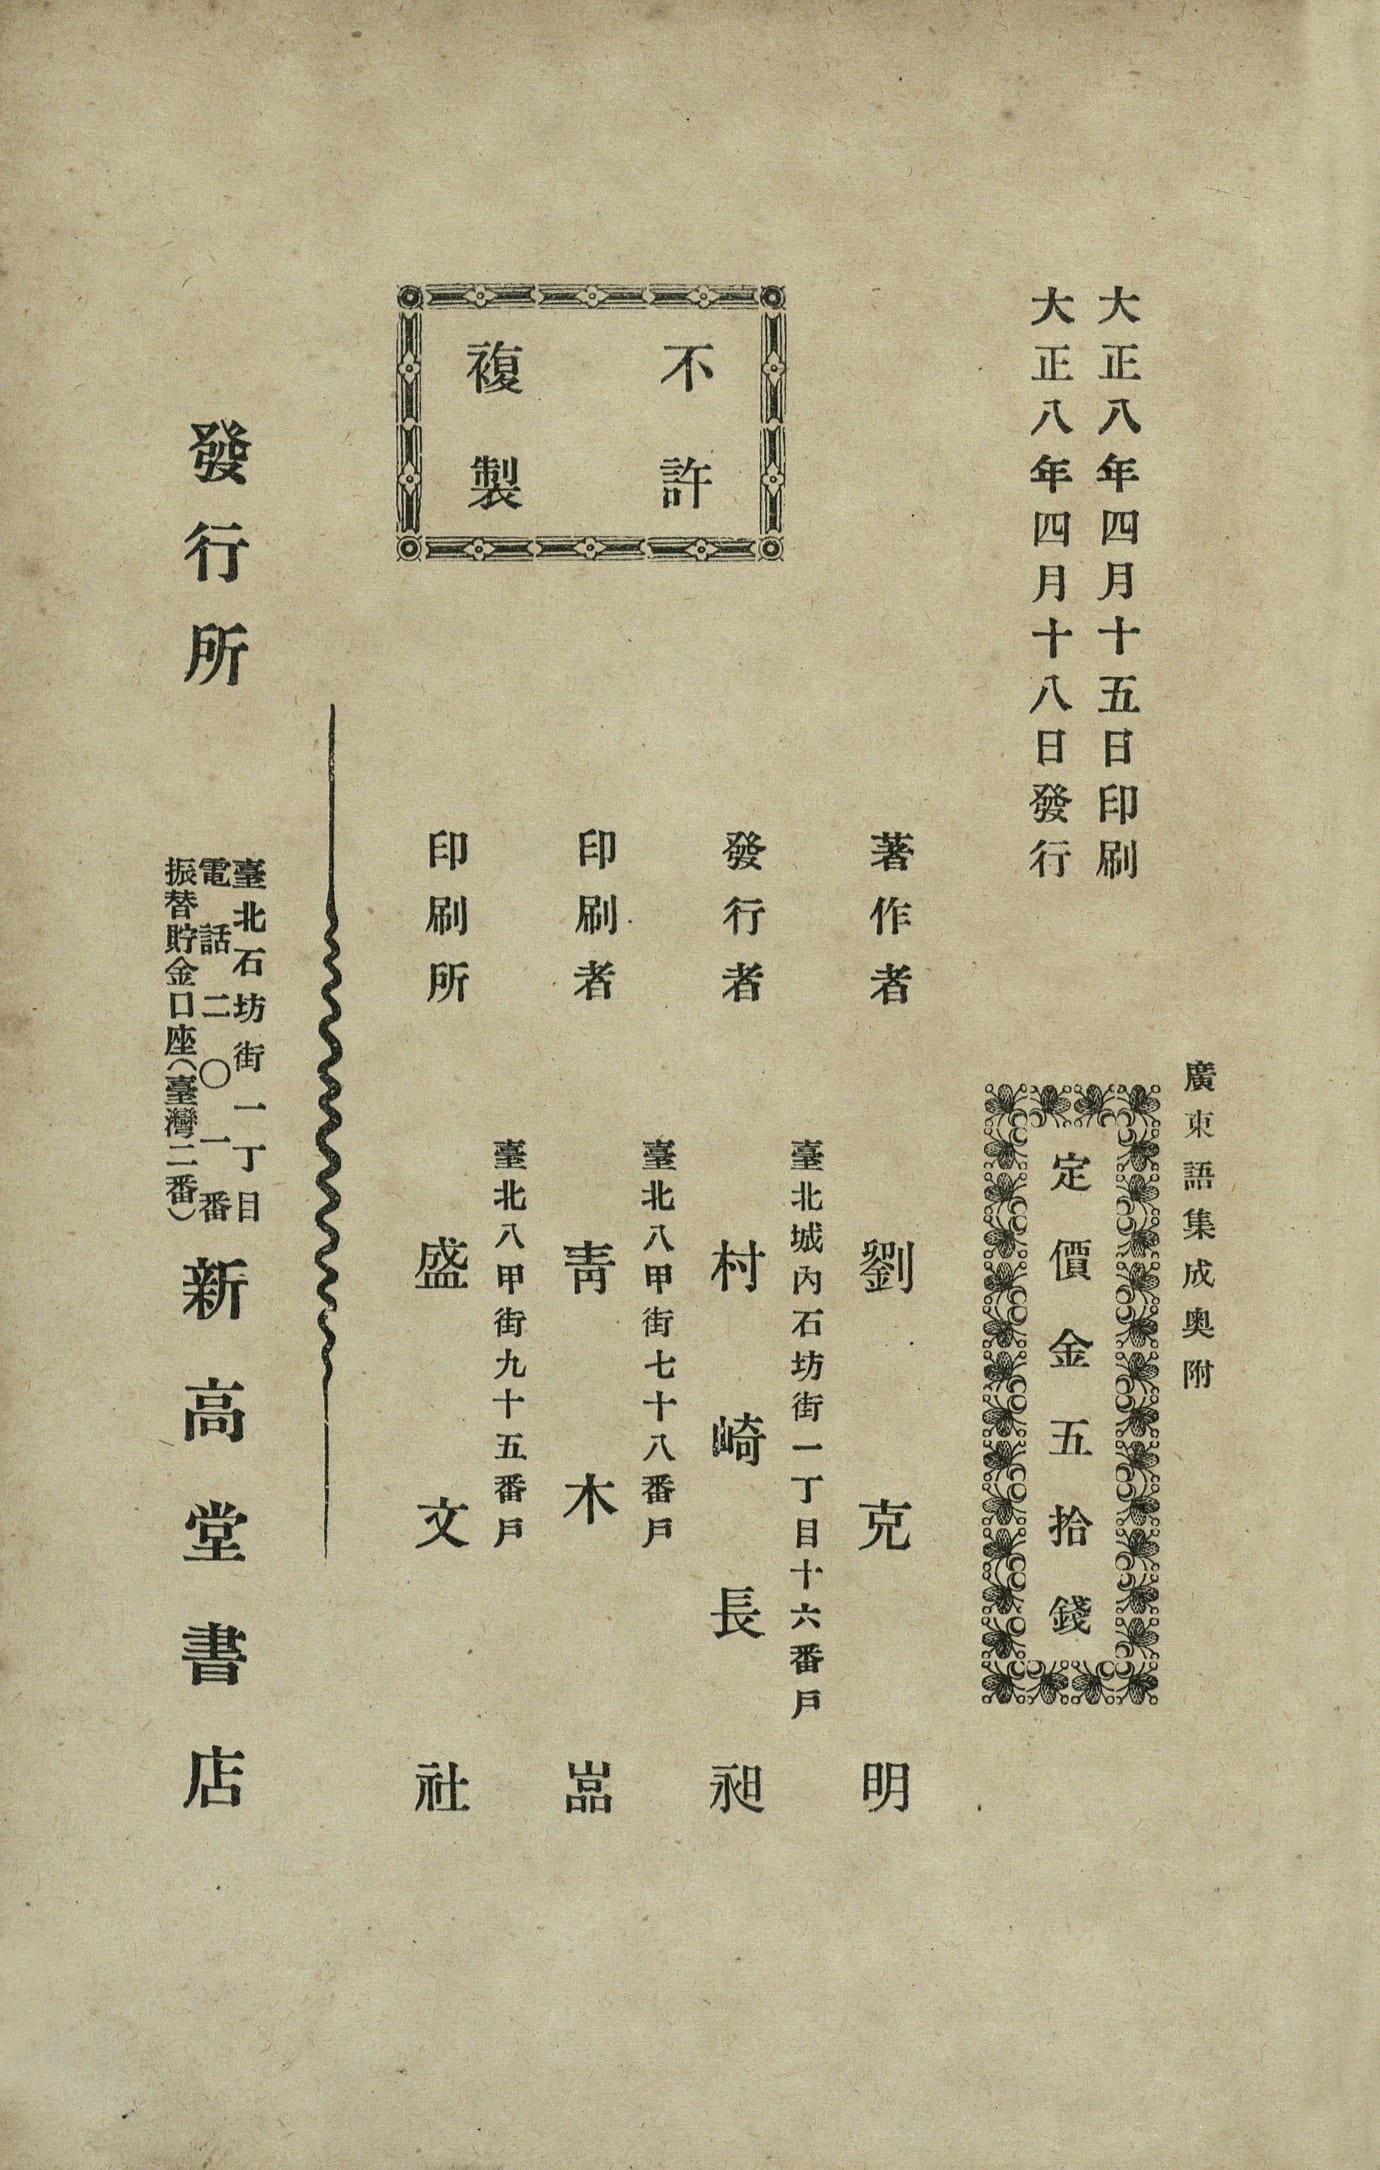 廣東語集成奧附
大正八年四月十五日印刷
大正八年四月十八日發行
定價金五拾錢
著作者 劉克明
臺北城內石坊街一丁目十六番戶
發行者 村崎長昶
臺北八甲街七十八番戶
印刷者 青木嵓
臺北八甲街九十五番戶
印刷所 盛文社
不許
複製
發行所
臺北石坊街一丁目
電話二〇一番
振替貯金口座(臺灣二番)
新高堂書店